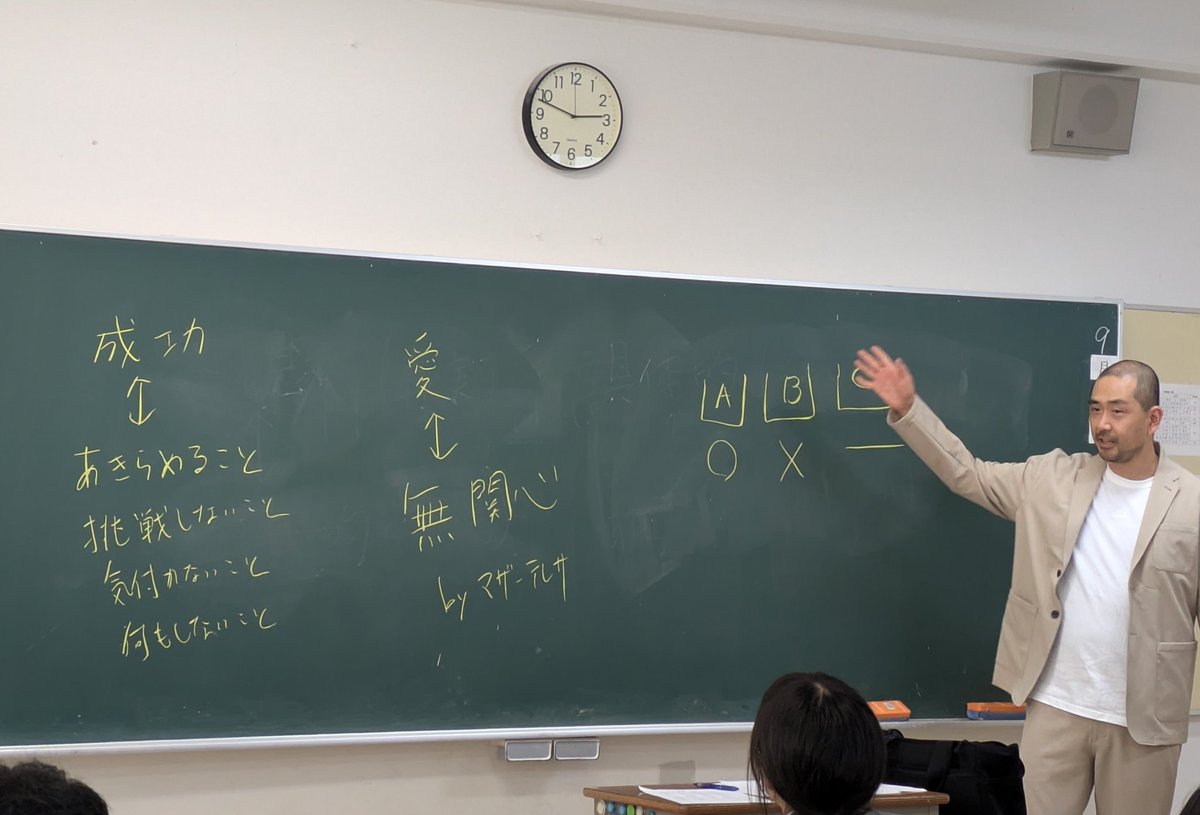 成功
↕
あきらめること
挑戦しないこと
気付かないこと
何もしないこと
愛
↕
無関心
by マザーテレサ
A B
○ × —
9
月
12
1
2
3
4
5
6
7
8
9
10
11